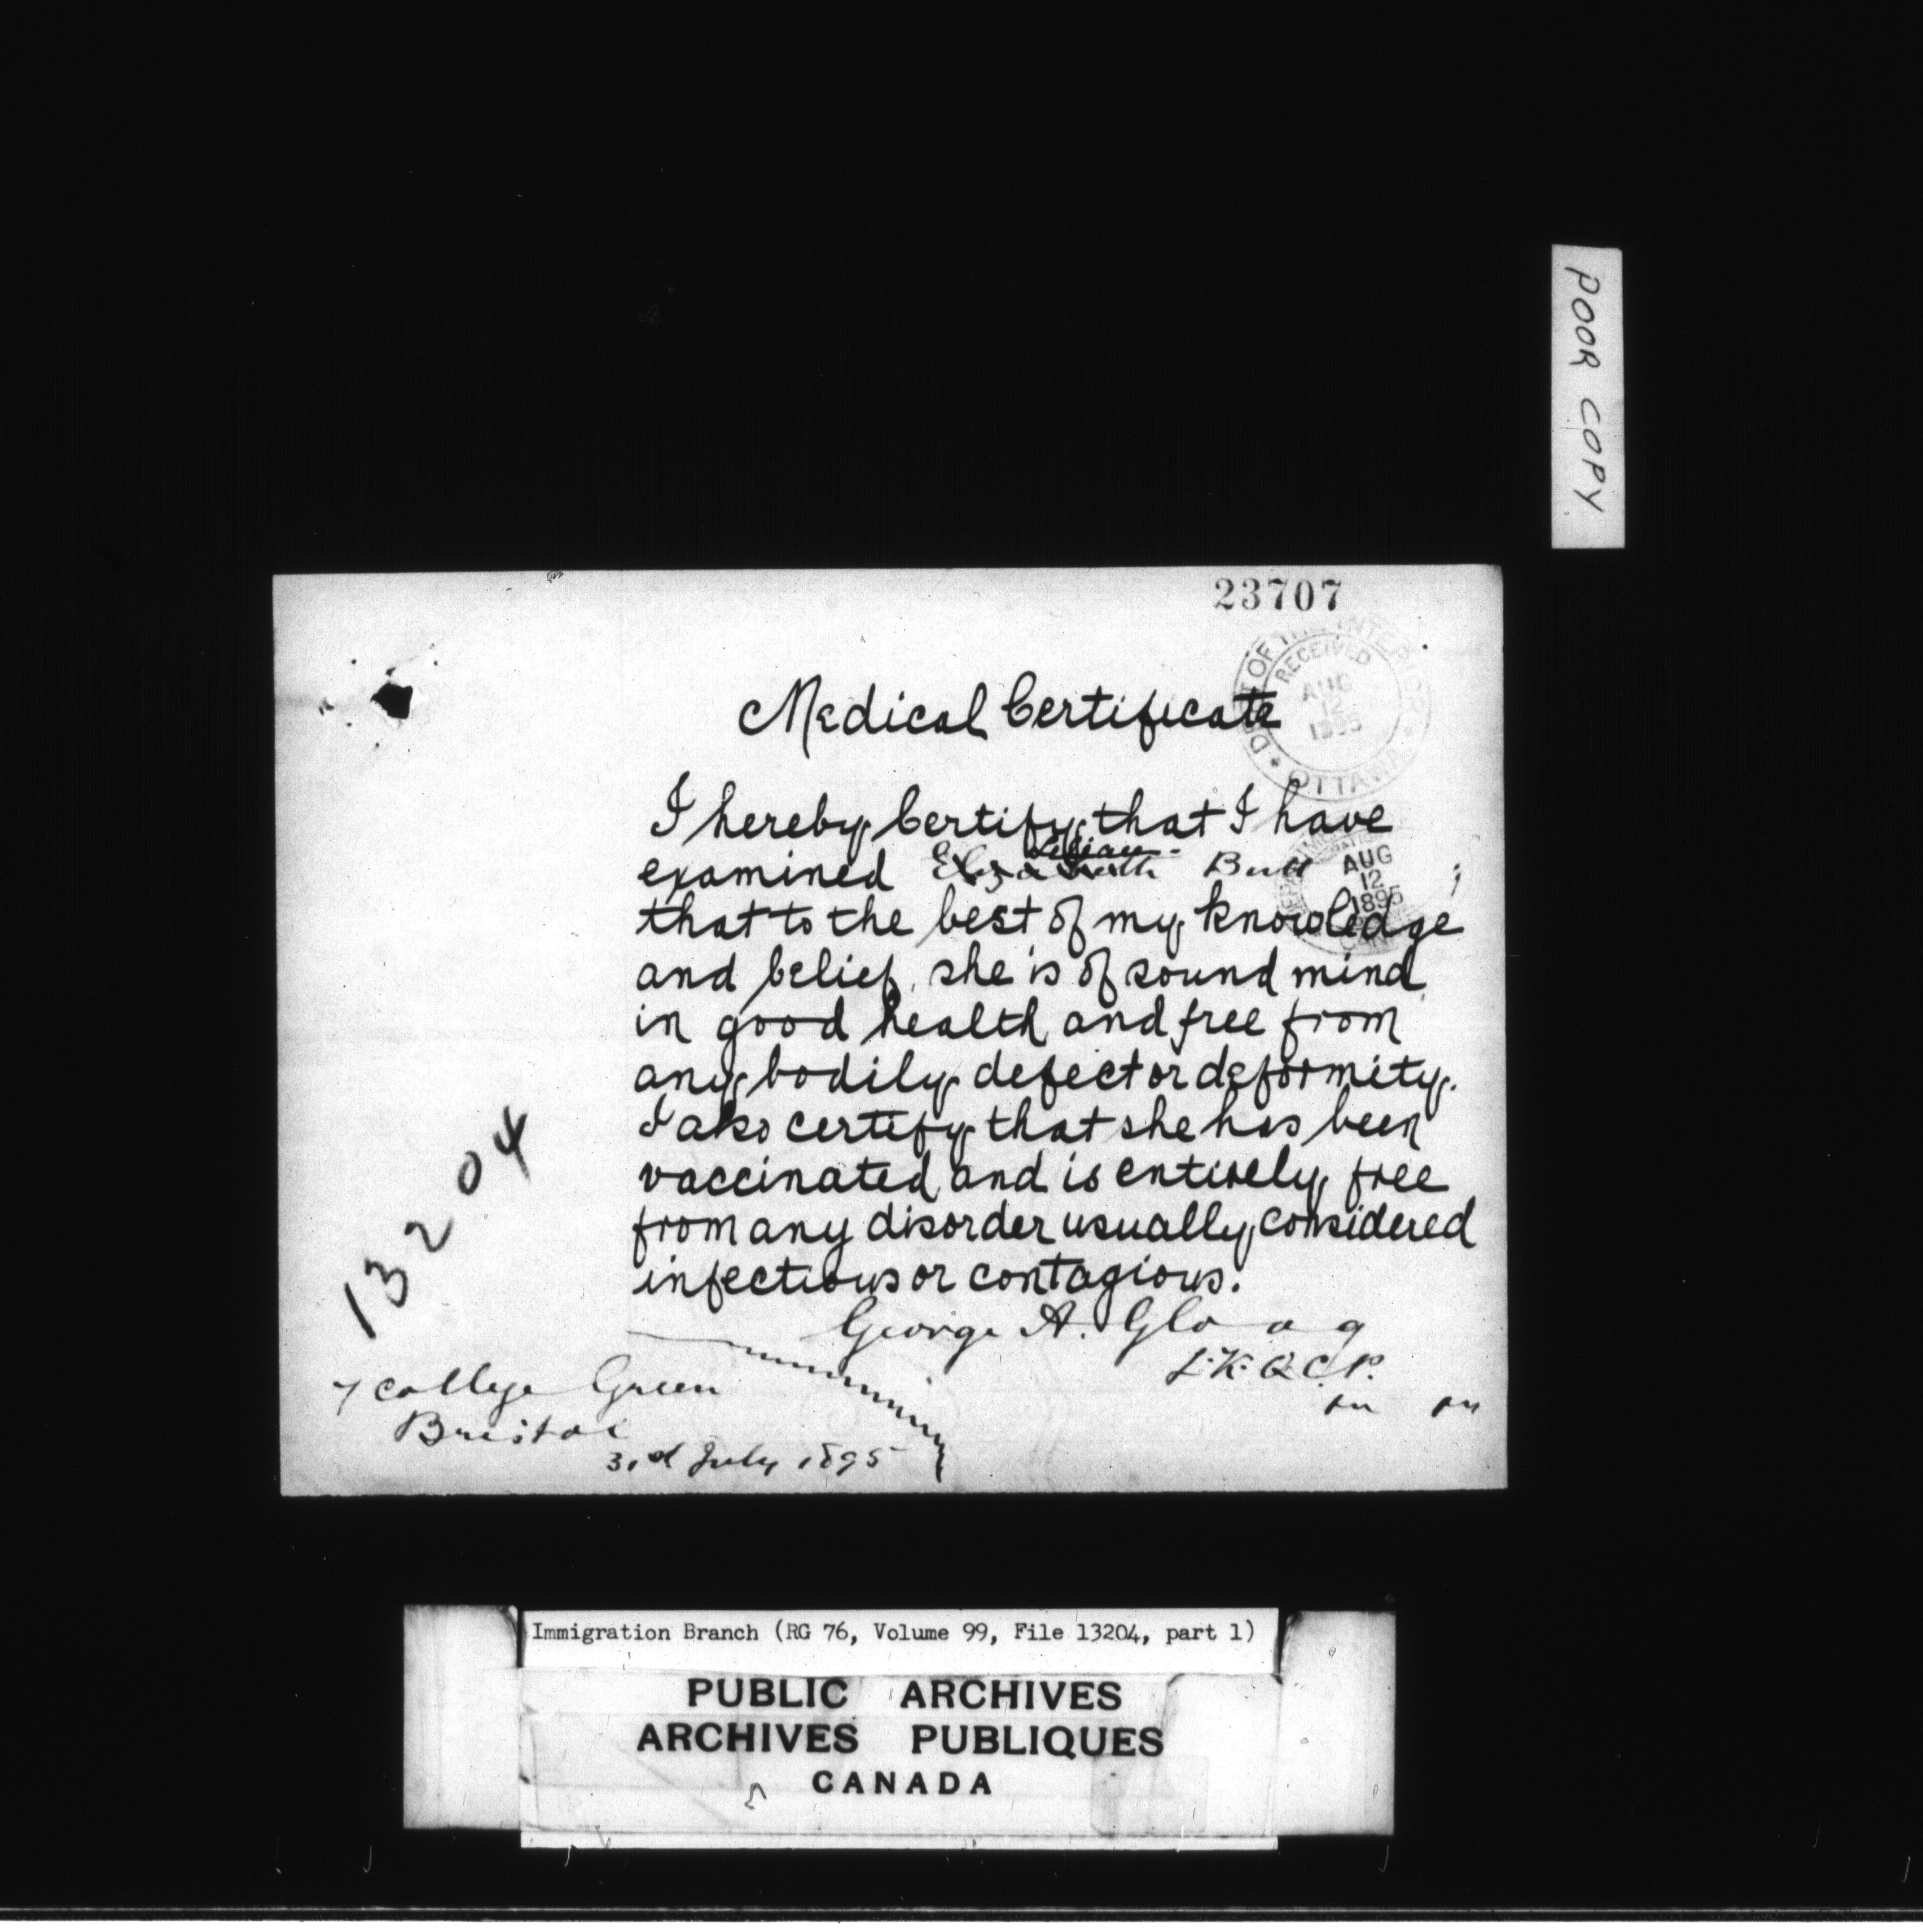 POOR COPY
23707
DEPT OF THE INTERIOR
RECEIVED
AUG
12
1895
OTTAWA
Medical Certificate
I hereby Certify that I have
Lilian
examined Elizabeth Bull
AUG
12
1895
that to the best of my knowledge
and belief, she is of sound mind
in good health and free from
any bodily defect or deformity.
I also certify that she has been
vaccinated and is entirely free
from any disorder usually considered
infectious or contagious.
13204
George A. Gloag
L.K.Q.C.P.
7 College Green
Bristol
3rd July 1895
Immigration Branch (RG 76, Volume 99, File 13204, part 1)
PUBLIC ARCHIVES
ARCHIVES PUBLIQUES
CANADA